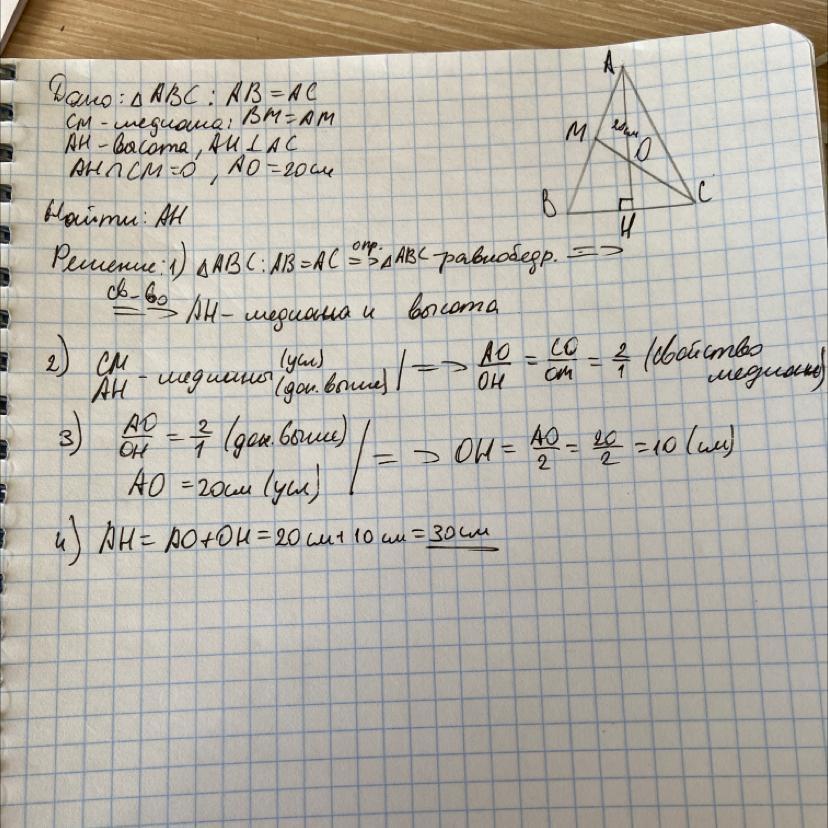 Дано: △ABC: AB = AC
CM - медиана; BM = AM
AH - высота, AH ⊥ AC
AH ∩ CM = O, AO = 20 см
Найти: AH
A
M
20см
O
B
C
H
Решение: 1) △ABC: AB = AC опр. => △ABC - равнобедр. =>
св-во => AH - медиана и высота
2) CM (усл) AH - медианы (док. выше) | => AO/OH = CO/OM = 2/1 (свойство медианы)
3) AO/OH = 2/1 (док. выше) | => OH = AO/2 = 20/2 = 10 (см)
AO = 20см (усл)
4) AH = AO + OH = 20 см + 10 см = 30 см